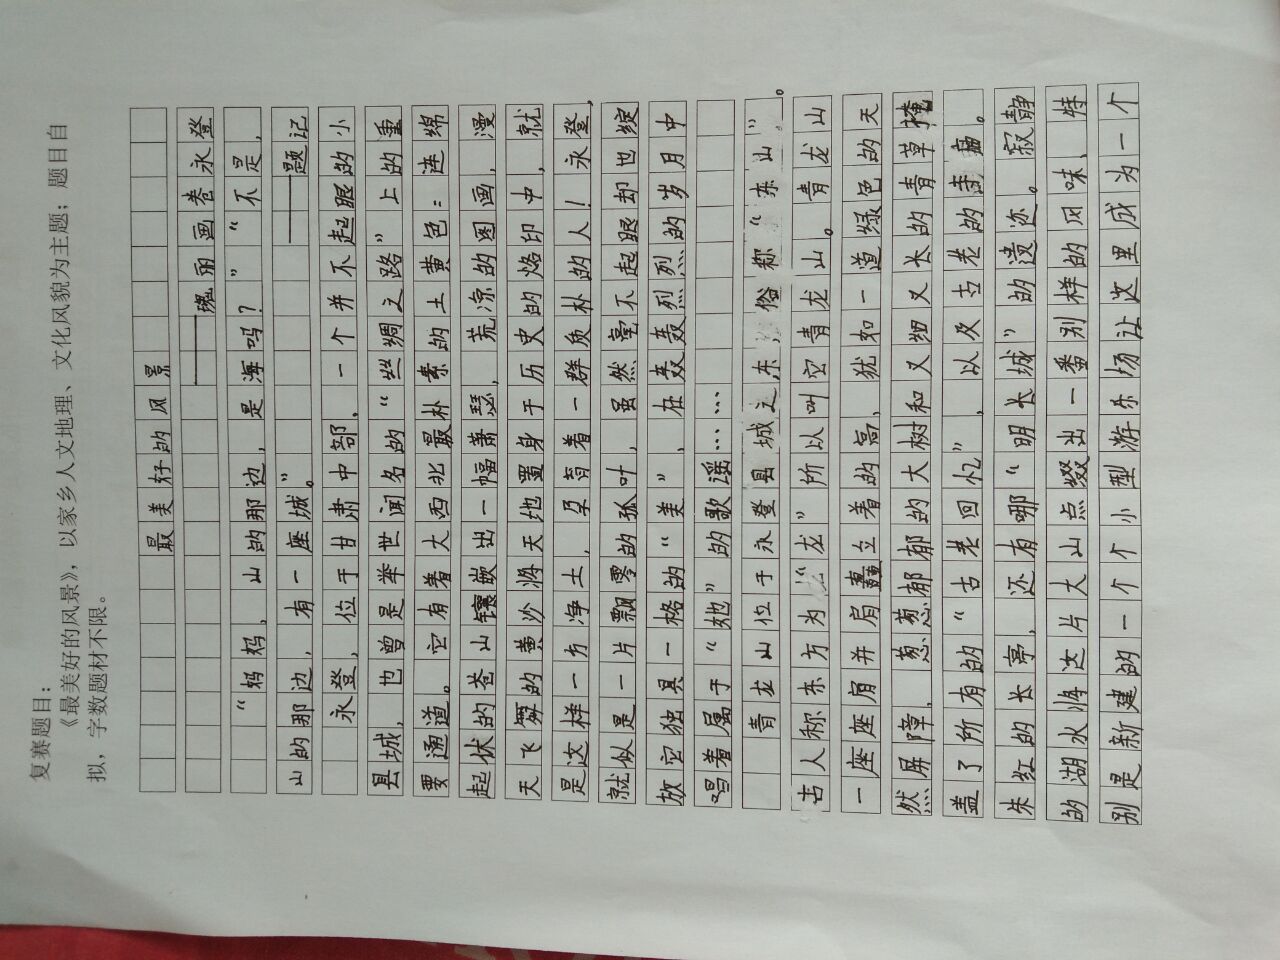 复赛题目：
《最美好的风景》，以家乡人文地理、文化风貌为主题；题目自
拟，字数题材不限。
最美好的风景
——瑰丽画卷永登
“妈妈，山的那边，是海吗？”“不是，
山的那边，有一座城。”——题记
永登，位于甘肃中部，一个并不起眼的小
县城，也曾是举世闻名的“丝绸之路”上的重
要通道。它有着大西北最朴素的土黄色：连绵
起伏的苍山镶嵌出一幅萧瑟，荒凉的图画，漫
天飞舞的黄沙将天地置身于历史的烙印中，就
是这样一方净土，孕育着一群质朴的人！永登，
就似是一片飘零的孤叶，虽然毫不起眼却也绽
放它独具一格的“美”，在轰轰烈烈的岁月中
唱着属于“她”的歌谣……
青龙山位于永登县城之东，俗称“东山”。
古人称东方为“龙”所以叫它青龙山。青龙山
一座座肩并肩矗立着的高，犹如一道绿色的天
然屏障，葱葱郁郁的大树和又细又长的青草掩
盖了所有的“古老回忆”，以及古老的寺庙。
朱红的长亭，还有哪“明长城”的遗迹。寂静
的湖水将这片大山点缀出一番别样的风味、特
别是新建的一个个小型游乐场让这里成为一个